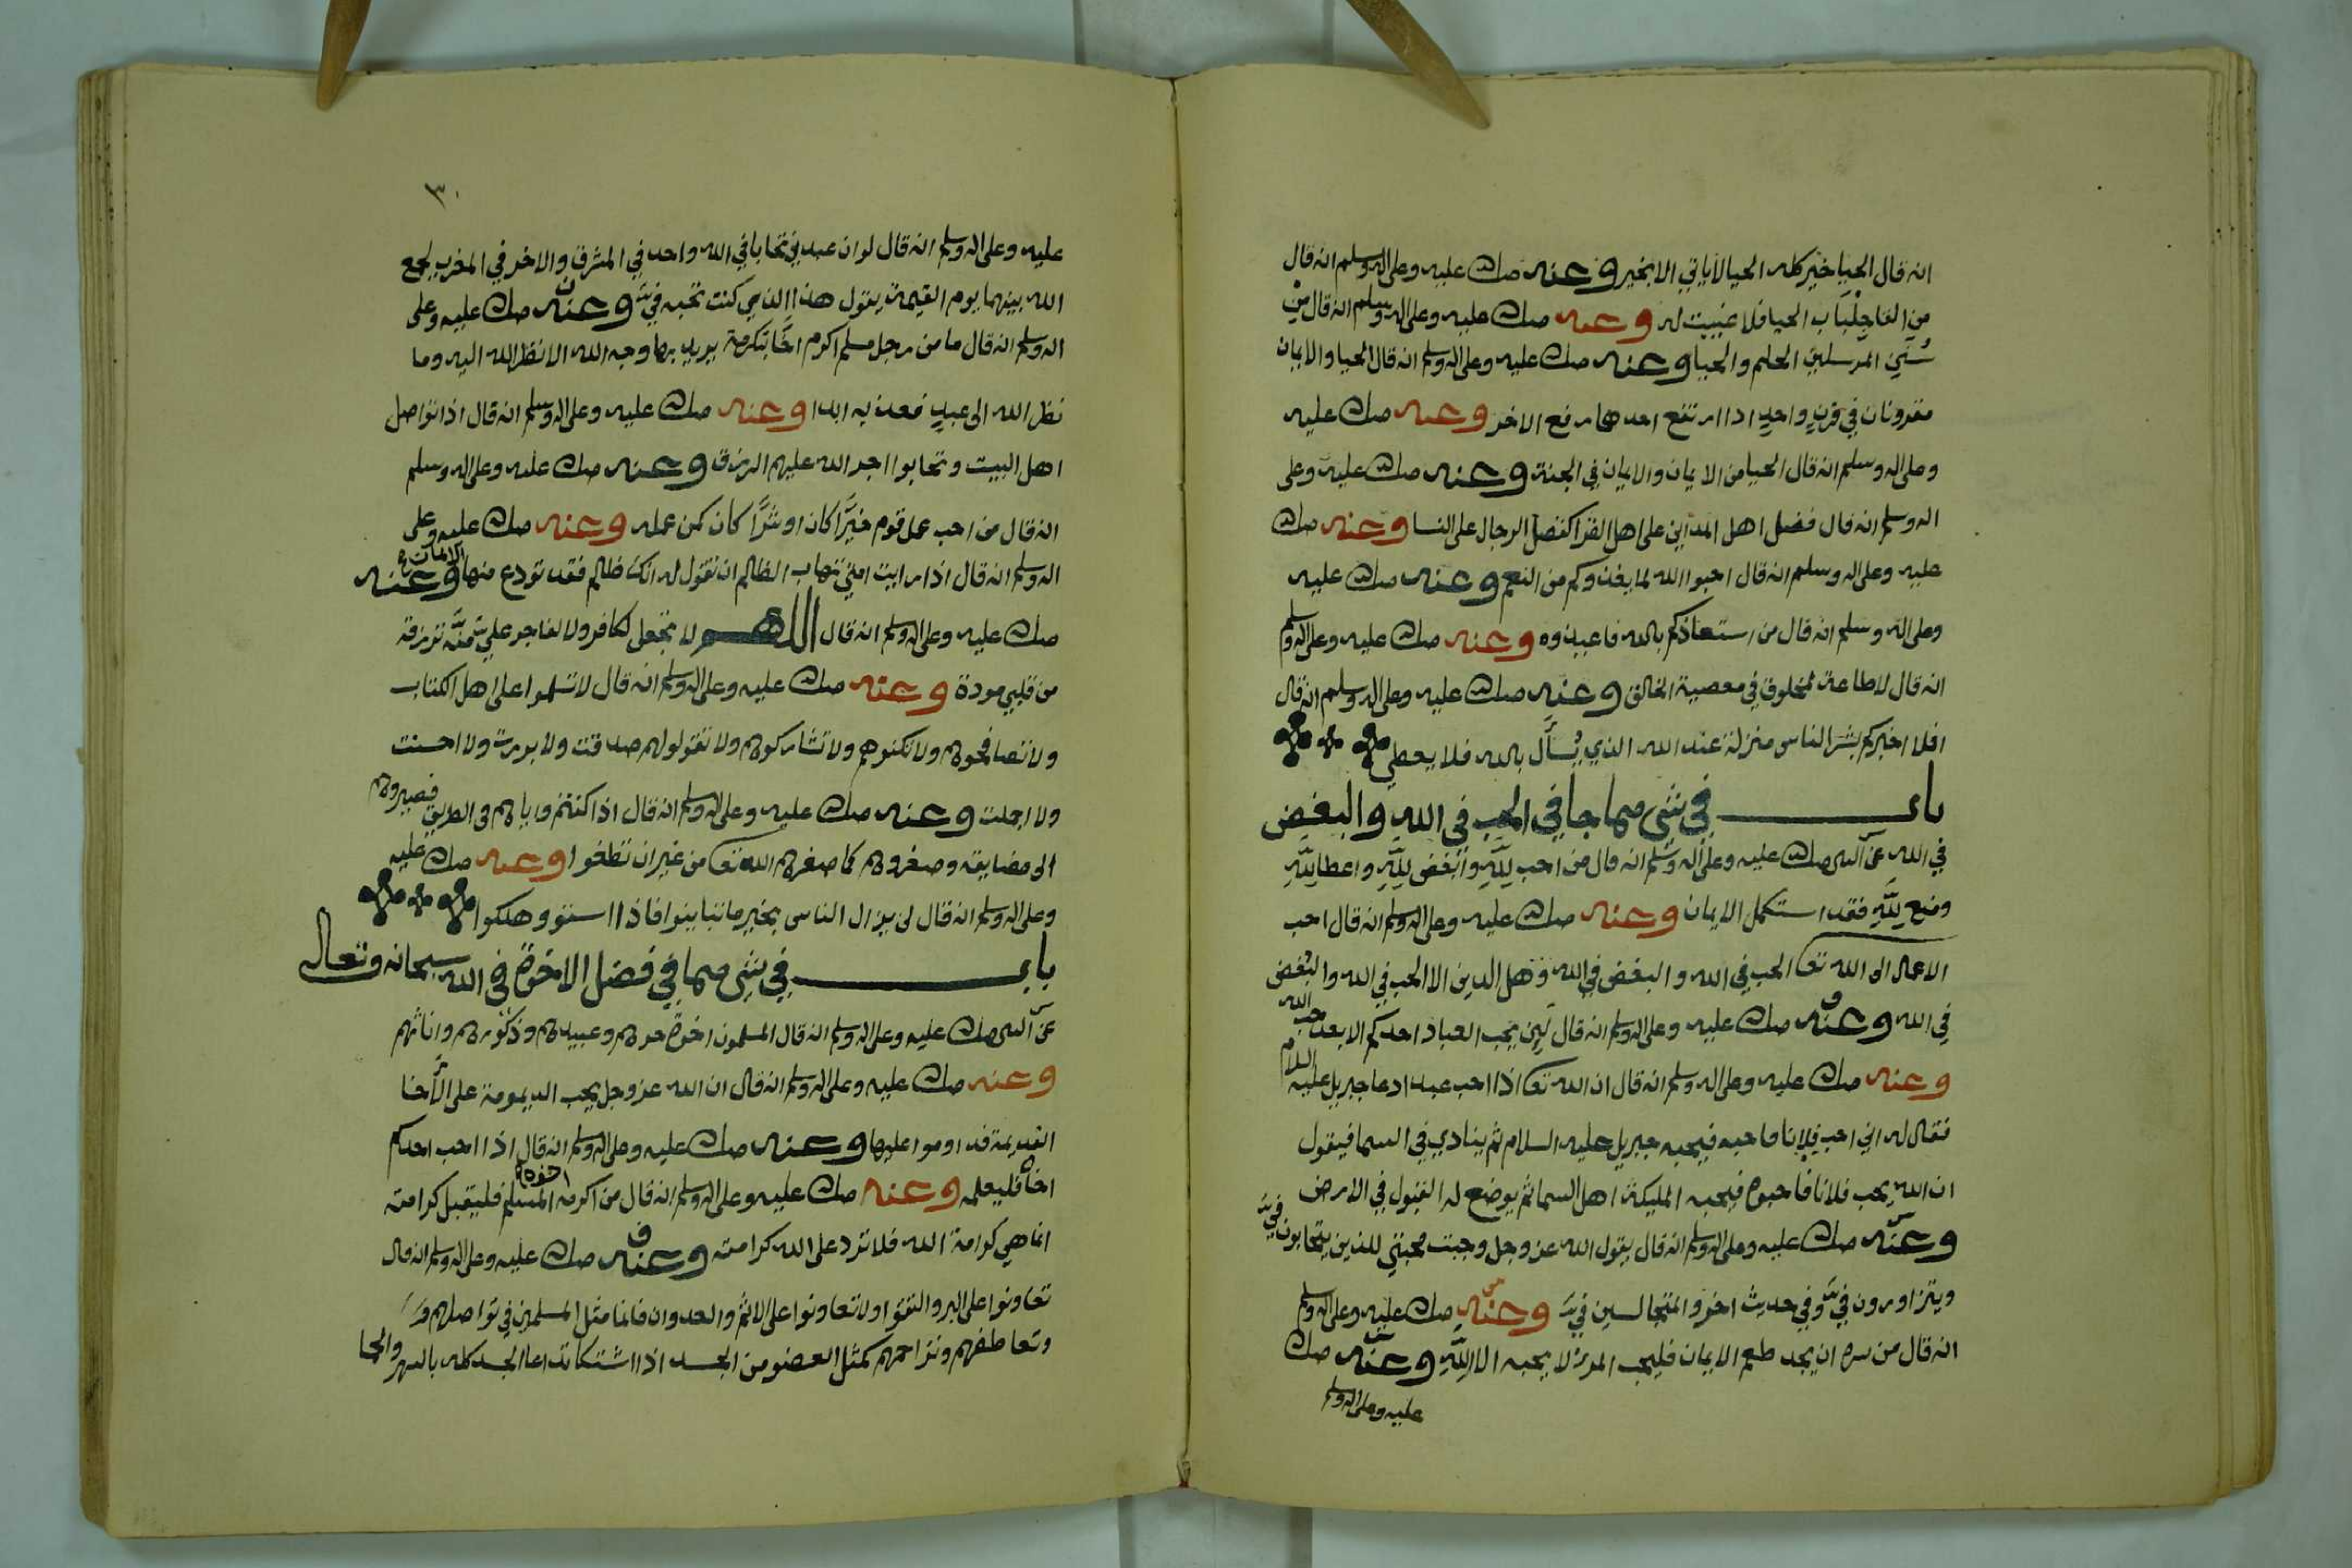 انه قال الحيا خير كله الحيا لا ياتي الا بخير وعنه صلى الله عليه وعلى اله وسلم انه قال
من القا جلباب الحيا فلا غيبت له وعنه صلى الله عليه وعلى اله وسلم انه قال من
سنن المرسلين الحلم والحيا وعنه صلى الله عليه وعلى اله وسلم انه قال الحيا والايمان
مقرونان في قرن واحد اذا ارتفع احدهما رفع الاخر وعنه صلى الله عليه
وعلى اله وسلم انه قال الحيا من الايمان والايمان في الجنة وعنه صلى الله عليه وعلى
اله وسلم انه قال فضل اهل المداين على اهل القرا كفضل الرجال على النسا وعنه صلى الله
عليه وعلى اله وسلم انه قال احبوا الله لما يغذوكم من النعم وعنه صلى الله عليه
وعلى اله وسلم انه قال من استعاذكم بالله فاعيذوه وعنه صلى الله عليه وعلى اله وسلم
انه قال لا طاعة لمخلوق في معصية الخالق وعنه صلى الله عليه وعلى اله وسلم انه قال
افلا اخبركم بشر الناس منزلة عند الله الذي يسأل بالله فلا يعطي
باب في شي مما جا في الحب في الله والبغض
في الله عن النبي صلى الله عليه وعلى اله وسلم انه قال من احب لله وابغض لله واعطا لله
ومنع لله فقد استكمل الايمان وعنه صلى الله عليه وعلى اله وسلم انه قال احب
الاعمال الى الله تعا الحب في الله والبغض في الله وهل الدين الا الحب في الله والبغض
في الله وعنه صلى الله عليه وعلى اله وسلم انه قال لن يحب العباد احدكم الا بعد حب الله
وعنه صلى الله عليه وعلى اله وسلم انه قال ان الله تعا اذا احب عبدا دعا جبريل عليه السلام
فقال له اني احب فلانا فاحبه فيحبه جبريل عليه السلام ثم ينادي في السما فيقول
ان الله يحب فلانا فاحبوه فيحبه المليكة اهل السما ثم يوضع له القبول في الارض
وعنه صلى الله عليه وعلى اله وسلم انه قال يقول الله عز وجل وجبت محبتي للذين يتحابون فيَّ
ويتزاورون فيَّ وفي حديث اخر والمتجالسين فيَّ وعنه صلى الله عليه وعلى اله وسلم
انه قال من سره ان يجد طعم الايمان فليحب المرء لا يحبه الا لله وعنه صلى الله
عليه وعلى اله وسلم
٣٠
عليه وعلى اله وسلم انه قال لو ان عبدين تحابا في الله واحد في المشرق والاخر في المغرب لجمع
الله بينهما يوم القيمة يقول هذا الذي كنت تحبه فيَّ وعنه صلى الله عليه وعلى
اله وسلم انه قال ما من رجل مسلم اكرم اخًا بتكرمة يريد بها وجه الله الا نظر الله اليه وما
نظر الله الى عبد فعذبه ابدا وعنه صلى الله عليه وعلى اله وسلم انه قال اذا تواصل
اهل البيت وتحابوا اجرا الله عليهم الرزق وعنه صلى الله عليه وعلى اله وسلم
انه قال من احب عمل قوم خيرًا كان او شرًا كان كمن عمله وعنه صلى الله عليه وعلى
اله وسلم انه قال اذا رايت امتي تهاب الظالم ان تقول له انك ظالم فقد تودع منها وعنه
صلى الله عليه وعلى اله وسلم انه قال اللهم لا تجعل لكافر ولا لفاجر علي منَّة ترزقه
من قلبي مودة وعنه صلى الله عليه وعلى اله وسلم انه قال لا تسلموا على اهل الكتاب
ولا تصافحوهم ولا تكنوهم ولا تشاركوهم ولا تقولو لهم صدقت ولا بررت ولا احسنت
ولا اجملت وعنه صلى الله عليه وعلى اله وسلم انه قال اذا كنتم واياهم في الطريق فصيروهم
الى مضايقه وصغروهم كما صغرهم الله تعا من غير ان تظلموا وعنه صلى الله عليه
وعلى اله وسلم انه قال لن يزال الناس بخير ما تباينوا فاذا استووا هلكوا
باب في شي مما في فضل الاخوة في الله سبحانه وتعالى
عن النبي صلى الله عليه وعلى اله وسلم انه قال المسلمون اخوة حرهم وعبيدهم وذكورهم واناثهم
وعنه صلى الله عليه وعلى اله وسلم انه قال ان الله عز وجل يحب الديمومة على الاخا
القديمة فداوموا عليها وعنه صلى الله عليه وعلى اله وسلم انه قال اذا احب احدكم
اخاه فليعلمه وعنه صلى الله عليه وعلى اله وسلم انه قال من اكرمه اخوه المسلم فليقبل كرامته
انما هي كرامة الله فلا ترد على الله كرامته وعنه صلى الله عليه وعلى اله وسلم انه قال
تعاونوا على البر والتقوا ولا تعاونوا على الاثم والعدوان فانما مثل المسلمين في تواصلهم
وتعاطفهم وتراحمهم كمثل العضو من الجسد اذا اشتكا تداعا الجسد كله بالسهر والحما